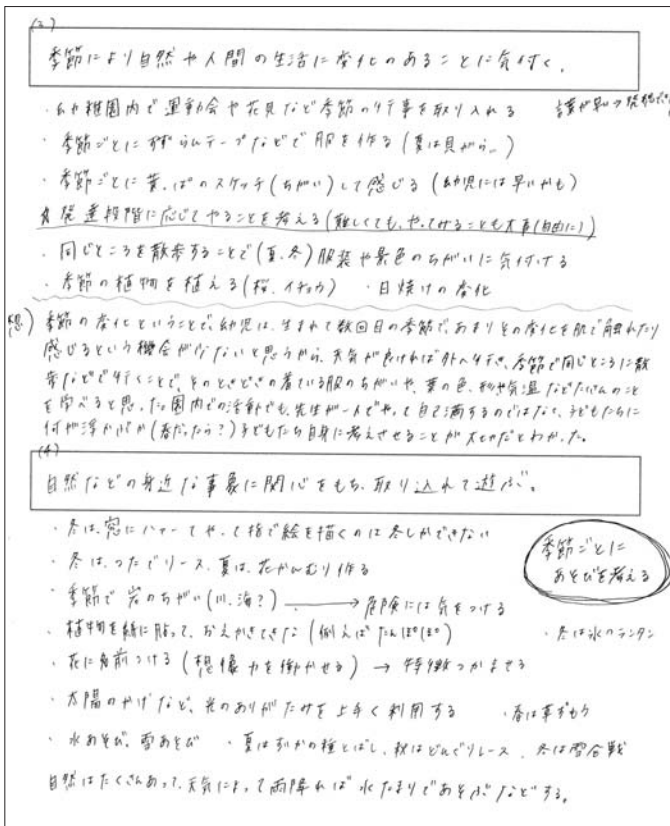 (3)
季節により自然や人間の生活に変化のあることに気付く。
・幼稚園内で運動会や花見など季節の行事を取り入れる
・季節ごとにすずらんテープなどで服を作る(夏は貝がら…)
・季節ごとに葉っぱのスケッチ(ちがい)して感じる(幼児には早いかも)
発達段階に応じてやることを考える(難しくても、やってみることも大事(自由に))
・同じところを散歩することで(夏、冬)服装や景色のちがいに気付ける
・季節の植物を植える(桜、イチョウ) ・日焼けの変化
感) 季節の変化ということで、幼児は、生まれて数回目の季節で、あまりその変化を肌で触れたり
感じるという機会が少ないと思うから、天気が良ければ外へ行き、季節で同じところに散
歩などで行くことで、そのときどきの着ている服のちがいや、葉の色、形や気温などたくさんのこと
を学べると思った。園内での活動でも、先生が一人でやって自己満するのではなく、子どもたちに
何が浮かぶか(春だったら?)子どもたち自身に考えさせることが大切だとわかった。
(4)
自然などの身近な事象に関心をもち、取り入れて遊ぶ。
・冬は、窓にハァーてやって指で絵を描くのは冬しかできない
・冬は、つたでリース、夏は、花かんむり作る
季節ごとに
あそびを考える
・季節で岩のちがい(川、海?) → 危険には気をつける
・植物を紙に貼って、おえかきてきな(例えばたんぽぽ)
・冬は氷のランタン
・花に名前つける(想像力を働かせる) → 特徴つかませる
・太陽のかげなど、光のありがたみを上手く利用する
・水あそび、雪あそび ・夏はすいかの種とばし、秋はどんぐりレース、冬は雪合戦
自然はたくさんあって、天気によって雨降れば水たまりであそぶなどする。